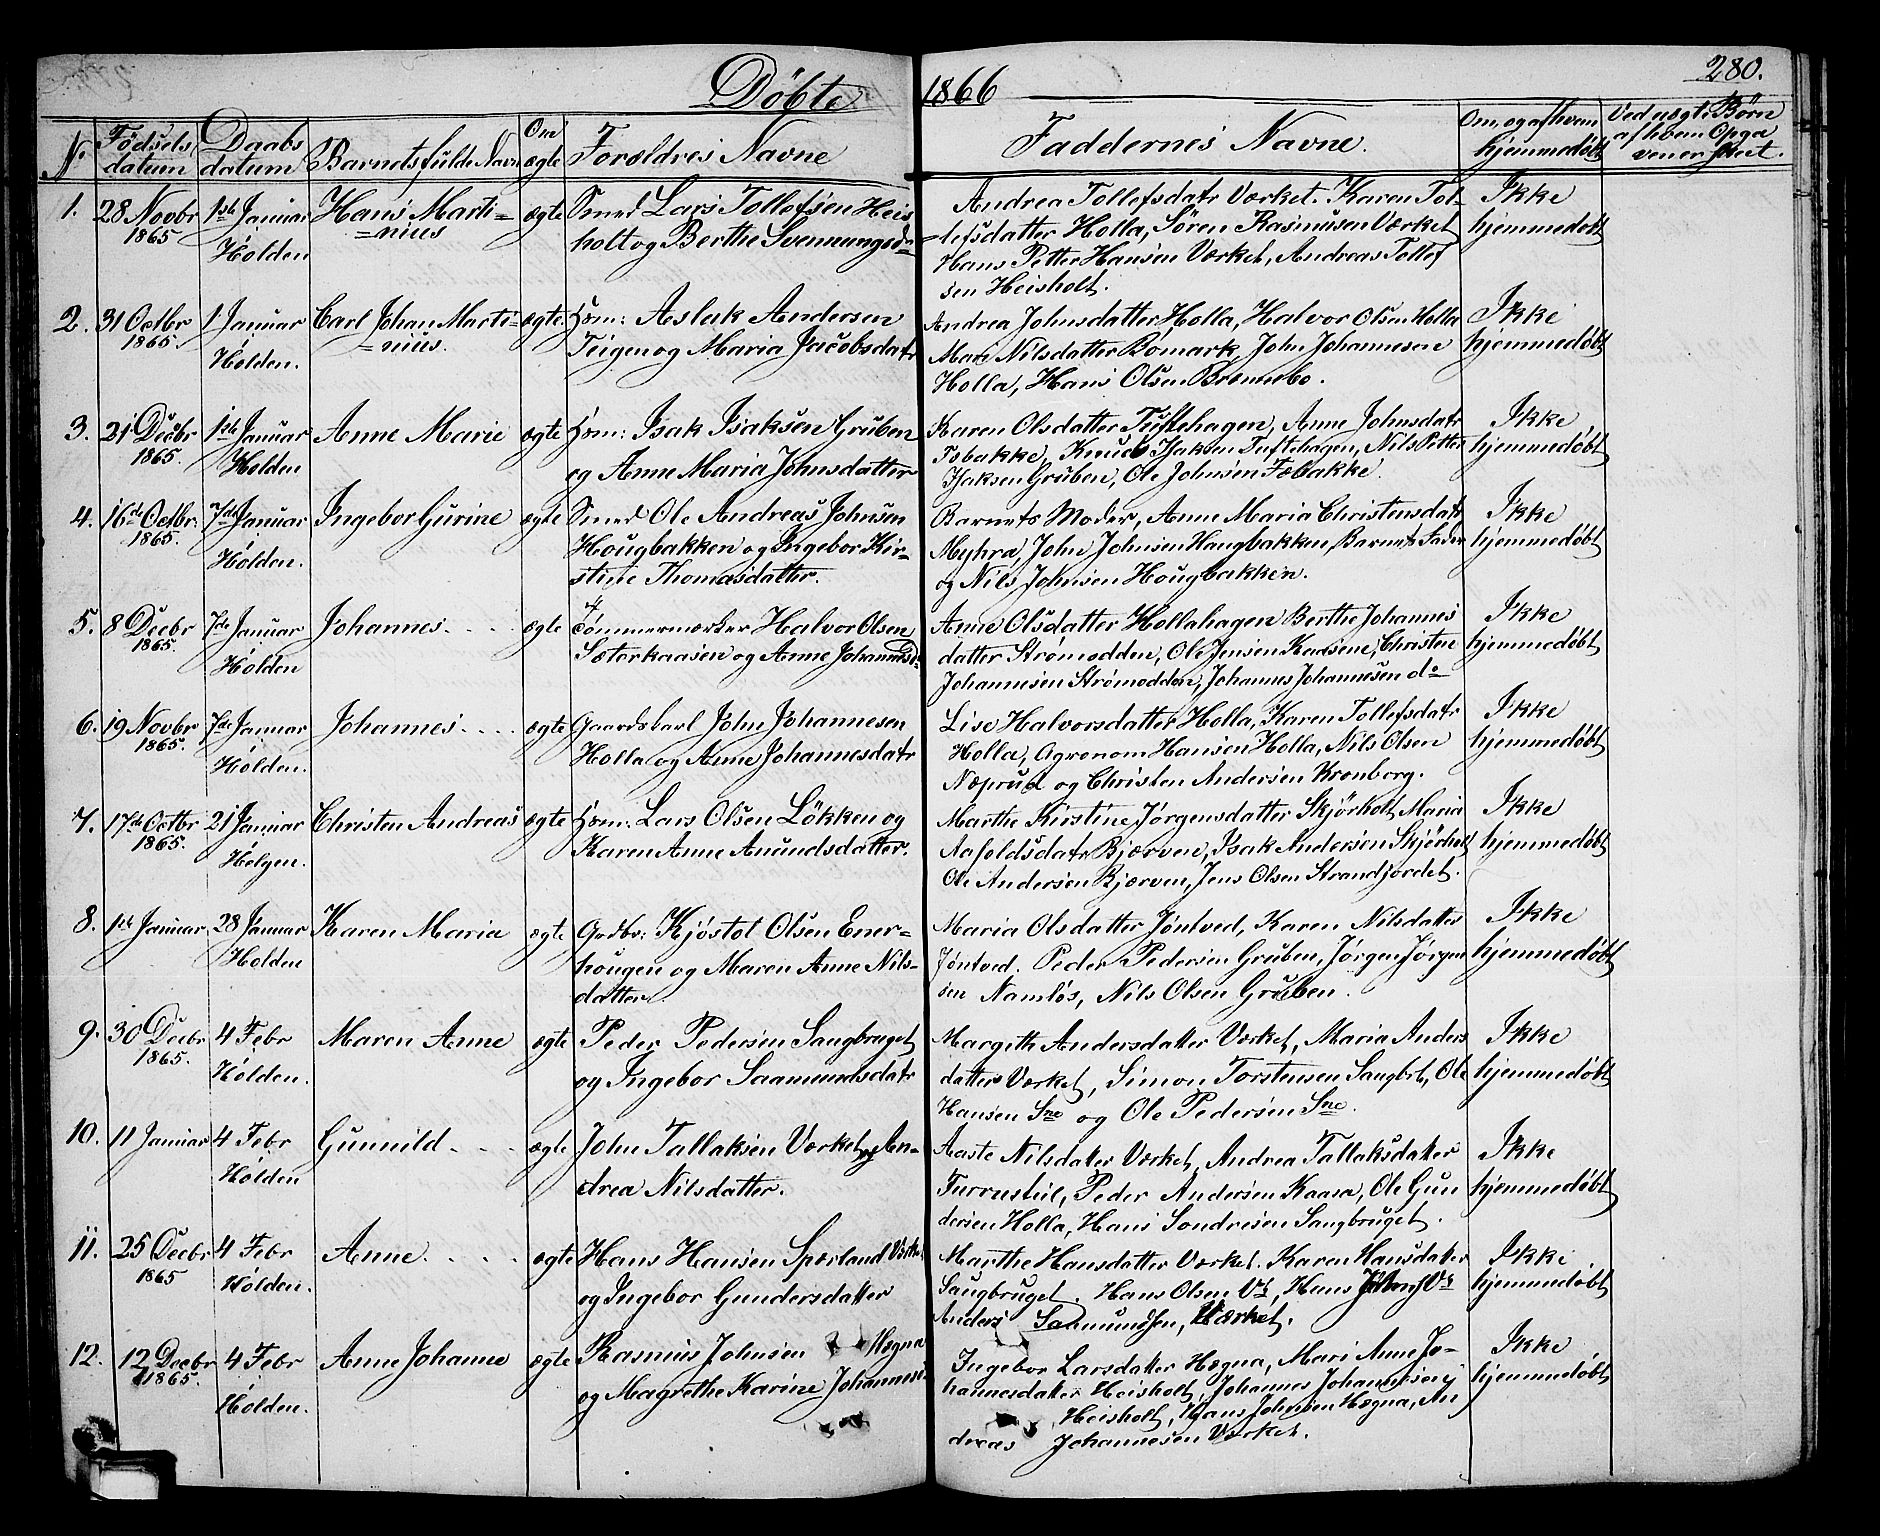 Döbte 1866
280.
No Fødsels datum
Daabs datum
Barnets fulde Navn
Om ægte
Forældres Navne
Faddernes Navne.
Om, og af hvem hjemmedøbt
Ved uægte Børn af hvem Opga ven er skeet.
1. 28 Novbr 1865
1ste Januar Holden
Hans Marti= =nius
ægte
Smed Lars Tollefsen Heis
holt og Berthe Svennungsd=
Andrea Tollefsdatr Værket. Karen Tol=
=lefsdatter Holla, Søren Rasmusen Værket
Hans Petter Hansen Værket, Andreas Tollef
sen Heisholt.
Ikke hjemmedøbt
2. 31 Octbr 1865
1 Januar Holden.
Carl Johan Marti= =nius.
ægte
Hsm: Aslak Andersen
Teigen og Maria Jacobsdatr
Andrea Johnsdatter Holla, Halvor Olsen Holla
Mari Nilsdatter Bømark, John Johannesen
Holla, Hans Olsen Brennebo.
Ikke hjemmedøbt
3. 21 Decbr 1865.
1ste Januar Holden
Anne Marie
ægte
Hsm: Isak Isaksen Gruben
og Anne Maria Johnsdatter
Karen Olsdatter Tuftehagen, Anne Johnsdatr
Fæbakke, Knud Isaksen Tuftehagen, Nils Petter
Isaksen Gruben, Ole Johnsen Fæbakke.
Ikke hjemmedøbt
4. 16de Octbr: 1865.
7de Januar Holden.
Ingebor Gurine
ægte
Smed Ole Andreas Johnsen
Hougbakken og Ingebor Kir=
stine Thomasdatter.
Barnets Moder, Anne Maria Christensdatr
Myhra, John Johnsen Haugbakken, Barnets Fader
og Nils Johnsen Hougbakken.
Ikke hjemmedøbt
5. 8 Decbr 1865.
7de Januar Holden
Johannes. . . .
ægte
Tømmermærker Halvor Olsen
Sæterkaasen og Anne Johannesd=
Anne Olsdatter Hollahagen Berthe Johannes
datter Strømodden, Ole Jensen Kaasene, Christen
Johannesen Strømodden, Johannes Johannesen do
Ikke hjemmedøbt
6. 19 Novbr 1865.
7de Januar Holden.
Johannes. . . .
ægte
Gaardskarl John Johannesen
Holla og Anne Johannesdatr
Lise Halvorsdatter Holla, Karen Tollefsdatr
Holla, Agronom Hansen Holla, Nils Olsen
Næprud og Christen Andersen Kronborg.
Ikke hjemmedøbt
7. 17de Octbr 1865.
21 Januar Helgen.
Christen Andreas
ægte
Hsm: Lars Olsen Løkken og
Karen Anne Anundsdatter.
Marthe Kirstine Jørgensdatter Skjørholt Maria
Aafoldsdatr Bjærven, Isak Andersen Skjørholt
Ole Andersen Bjærven, Jens Olsen Strandjordet.
Ikke hjemmedøbt
8. 1ste Januar
28 Januar Holden
Karen Maria
ægte
Grdbr: Kjøstol Olsen Ener=
hougen og Maren Anne Nils=
datter
Maria Olsdatter Jøntved, Karen Nilsdatter
Jøntved. Peder Pedersen Gruben, Jørgen Jørgen
sen Namløs, Nils Olsen Gruben.
Ikke hjemmedøbt
9. 30 Decbr 1865.
4 Febr Holden.
Maren Anne
ægte
Peder Pedersen Saugbruget
og Ingebor Saamundsdatr
Margith Andersdatter Værket, Maria Anders
datter Værket, Simon Torstensen Saugbrt, Ole
Hansen Sne og Ole Pedersen Sne.
Ikke hjemmedøbt
10. 11 Januar
4 Febr Holden
Gunnild. . . .
ægte
John Tallaksen Værket og An=
drea Nilsdatter.
Aaste Nilsdatter Værket, Andrea Tallaksdatter
Furrustul, Peder Andersen Kaasa, Ole Gun
dersen Holla, Hans Sondresen Saugbruget.
Ikke hjemmedøbt
11. 25 Decbr 1865
4 Febr Holden.
Anne. . . .
ægte
Hans Hansen Spærland Værket
og Ingebor Gundersdatter
Marthe Hansdatter Værket. Karen Hansdatter
Saugbruget. Hans Olsen Vk, Hans Vk
Anders Samundsen, Værket.
Ikke hjemmedøbt
12. 12 Decbr 1865.
4 Febr Holden.
Anne Johanne
ægte
Rasmus Johnsen Hægna
og Magrethe Karine Johannesd
Ingebor Larsdatter Hægna, Mari Anne Jo=
hannesdatter Heisholt, Johannes Johannesen
Heisholt, Hans Johnsen Hægna, An
dreas Johannesen Værket.
Ikke hjemmedøbt